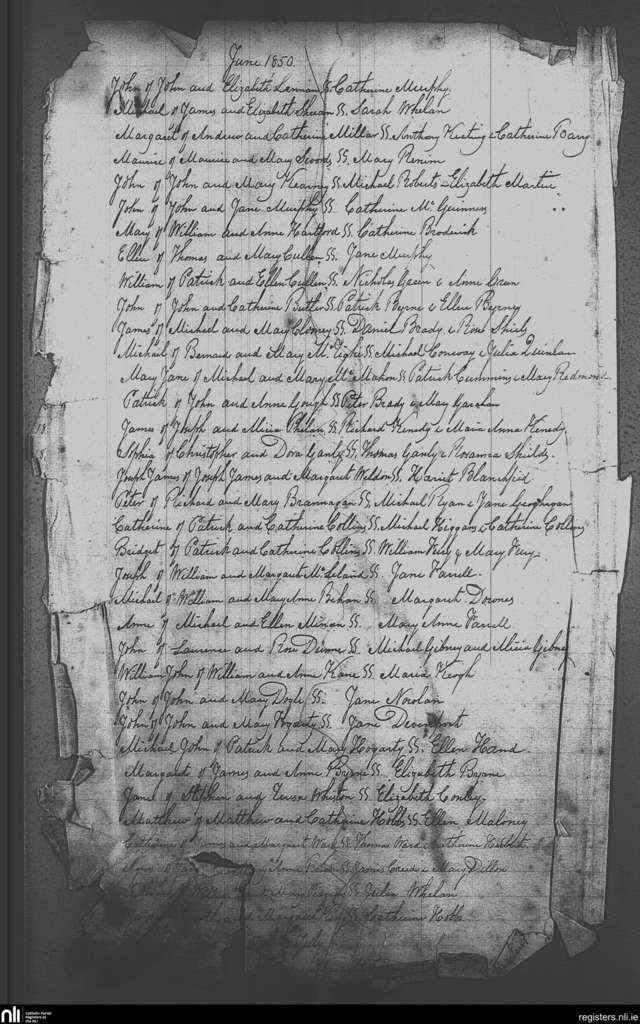 June 1850.
John of John and Elizabeth Lennan SS. Catherine Murphy.
Michael of James and Elizabeth Sheran SS. Sarah Whelan
Margaret of Andrew and Catherine Millar SS. Anthony Keating & Catherine Barry
Maurice of Maurice and Mary SS. Mary
John of John and Mary Kearney SS. Michael Roberts & Elizabeth Martin
John of John and Jane Murphy SS. Catherine Mc Guinness
Mary of William and Anne Hartford SS. Catherine Broderick
Ellen of Thomas and Mary Cullen SS. Jane Murphy
William of Patrick and Ellen Cullen SS. Nicholas & Anne
John of John and Catherine Butler SS. Patrick Byrne & Ellen Byrne
James of Michael and Mary Clooney SS. Daniel Brady & Rose Shiels
Michael of Bernard and Mary Mc Tighe SS Michael Conway & Julia Quinlan
Mary Jane of Michael and Mary Mc Mahon SS Patrick Cummins & Mary Redmond
Patrick of John and Anne Gough SS Peter Brady & Mary
James of Joseph and Alicia Phelan SS Richard Kenedy & Maria Anna Kenedy
Sophia of Christopher and Dora Ganly SS. Thomas Ganly & Rosanna Shields.
Joseph James of Joseph James and Margaret Weldon SS. Hariet Blanchfid
Peter of Richard and Mary Brannagan SS. Michael Ryan & Jane Geoghegan
Catherine of Patrick and Catherine Collins SS. Michael Higgans & Catherine Collins
Bridget of Patrick and Catherine Collins SS. William & Mary
Joseph of William and Margaret Mc Leland SS. Jane Farrell.
Michael of William and Mary Anne SS. Margaret Downes
Anne of Michael and Ellen SS. Mary Anne Farrell
John of Laurence and Rose Dunne SS. Michael Gibney and Alicia Gibney
William John of William and Anne Kane SS. Maria Keogh
John of John and Mary Doyle SS. Jane Nowlan
John of John and Mary Fogarty SS. Jane Devenport
Michael John of Patrick and Mary Hogarty SS. Ellen Hand
Margaret of James and Anne Byrne SS. Elizabeth Byrne
Jane of Stephen and Teresa Whiston SS. Elizabeth Conley.
Matthew of Matthew and Catherine Hobbs SS. Ellen Maloney
Catherine of James and Margaret Ward SS. Thomas Ward & Catherine
of Anne SS James & Mary Dillon
and Mary SS Whelan
and Margaret SS. Catherine Hobbs
July
nli
Catholic Parish
Registers at
the NLI
registers.nli.ie